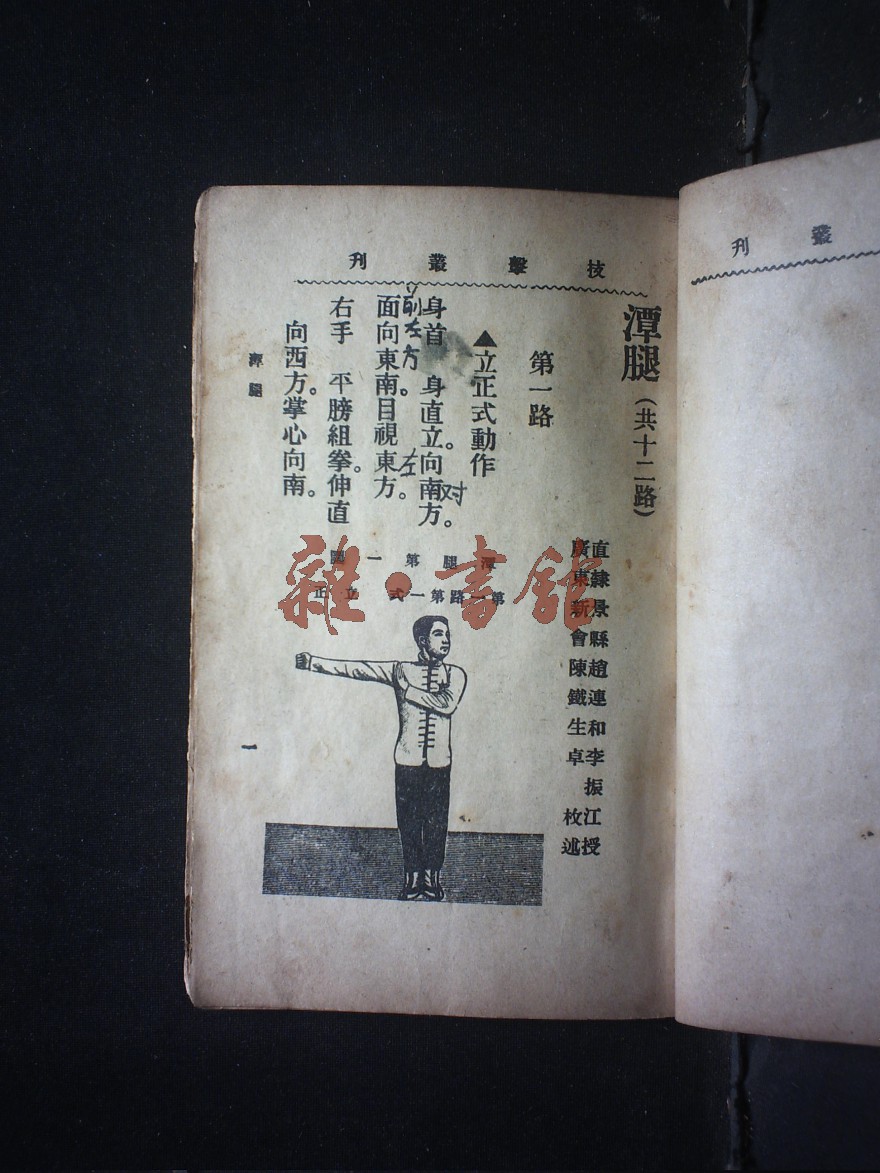 叢刊
技擊叢刊
潭腿(共十二路)
直隸景縣趙連和李振江授
廣東新會陳鐵生卓枚述
第一路
▲立正式動作
身首 身直立。向南方。
对
前左方
左
面向東南。目視東方。
右手 平膀組拳。伸直
向西方。掌心向南。
潭腿第一圖
第一路第一式 立正
潭腿
一
雜·書館